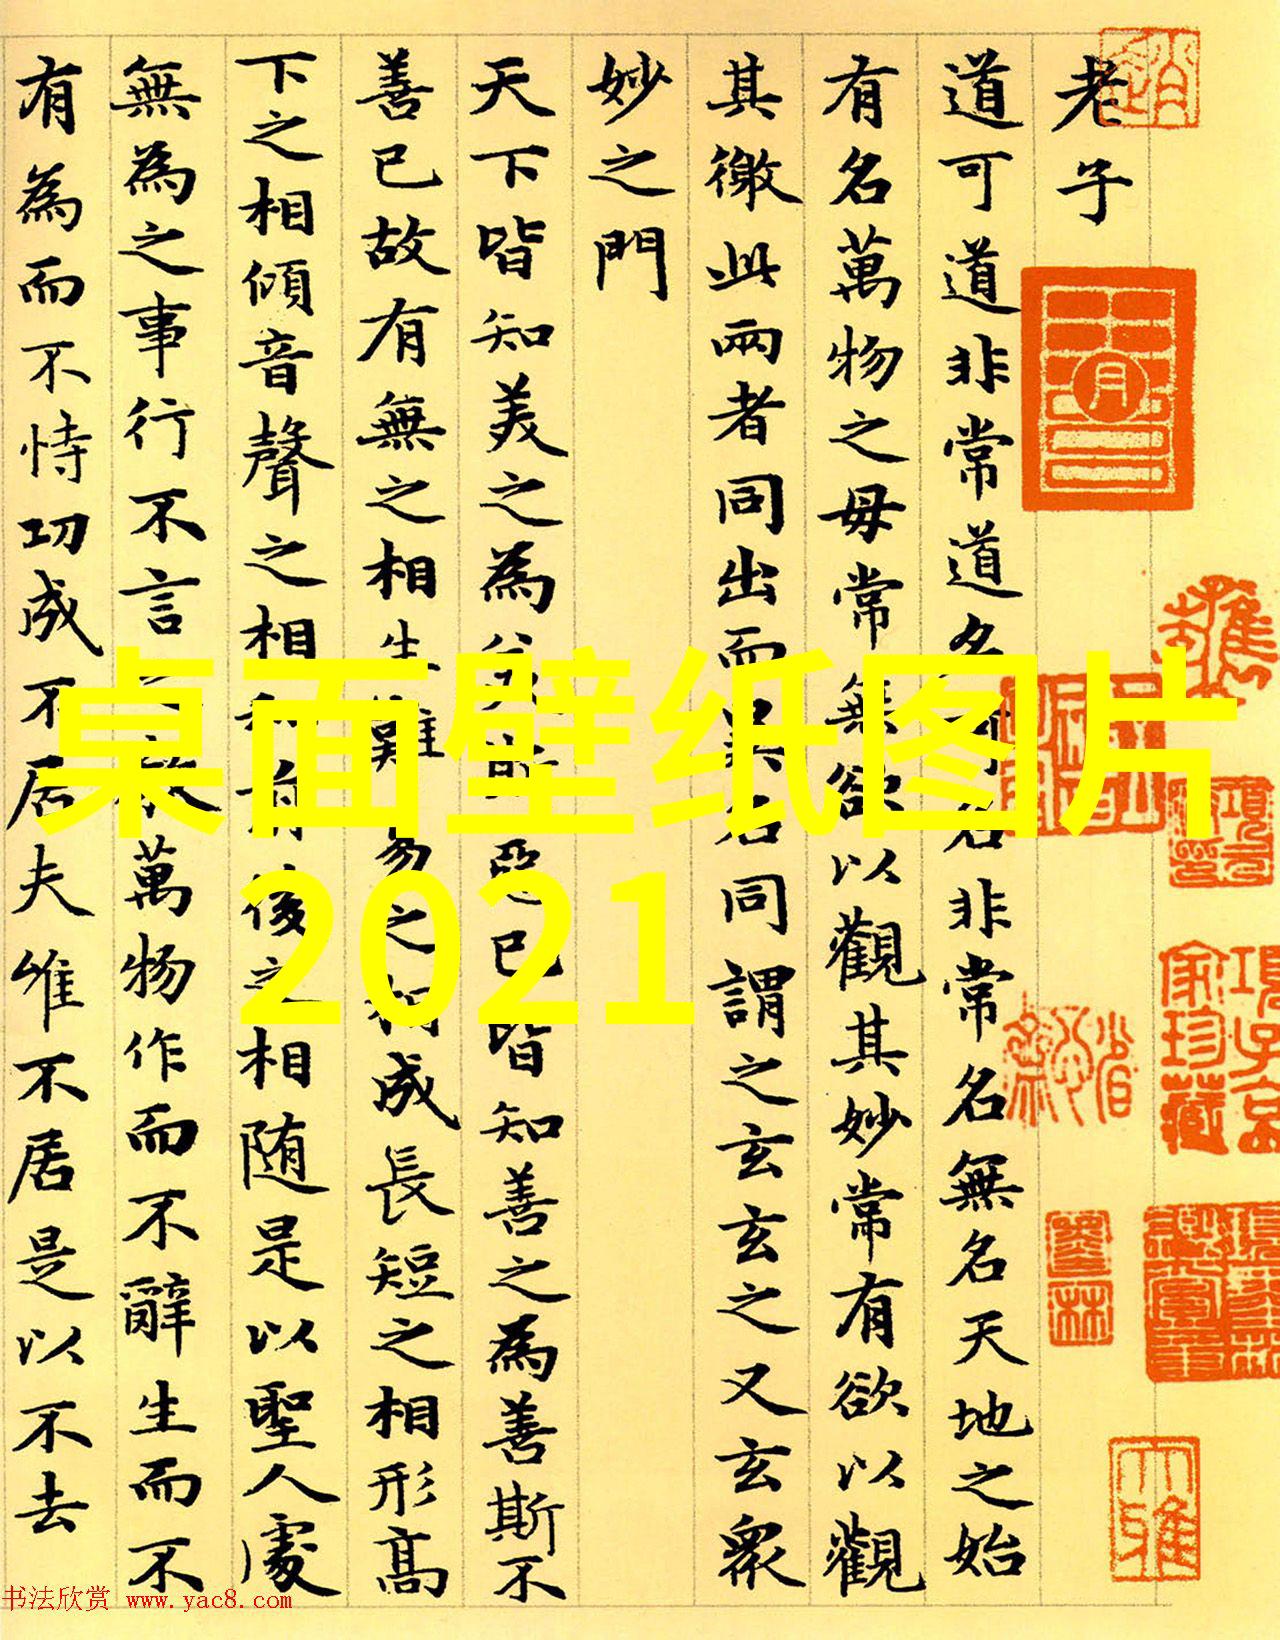 老子
道可道非常道名可名非常名無名天地之始
有名萬物之母常無欲以觀其妙常有欲以觀
其徼此兩者同出而異名同謂之玄玄之又玄衆
妙之門
天下皆知美之為美斯惡已皆知善之為善斯不
善已故有無之相生難易之相成長短之相形高
下之相傾音聲之相和前後之相隨是以聖人處
無為之事行不言之教萬物作而不辭生而不
有為而不恃功成不居夫唯不居是以不去
項子京
家珍藏
桌面壁纸图片
2021
书法欣赏 www.yac8.com